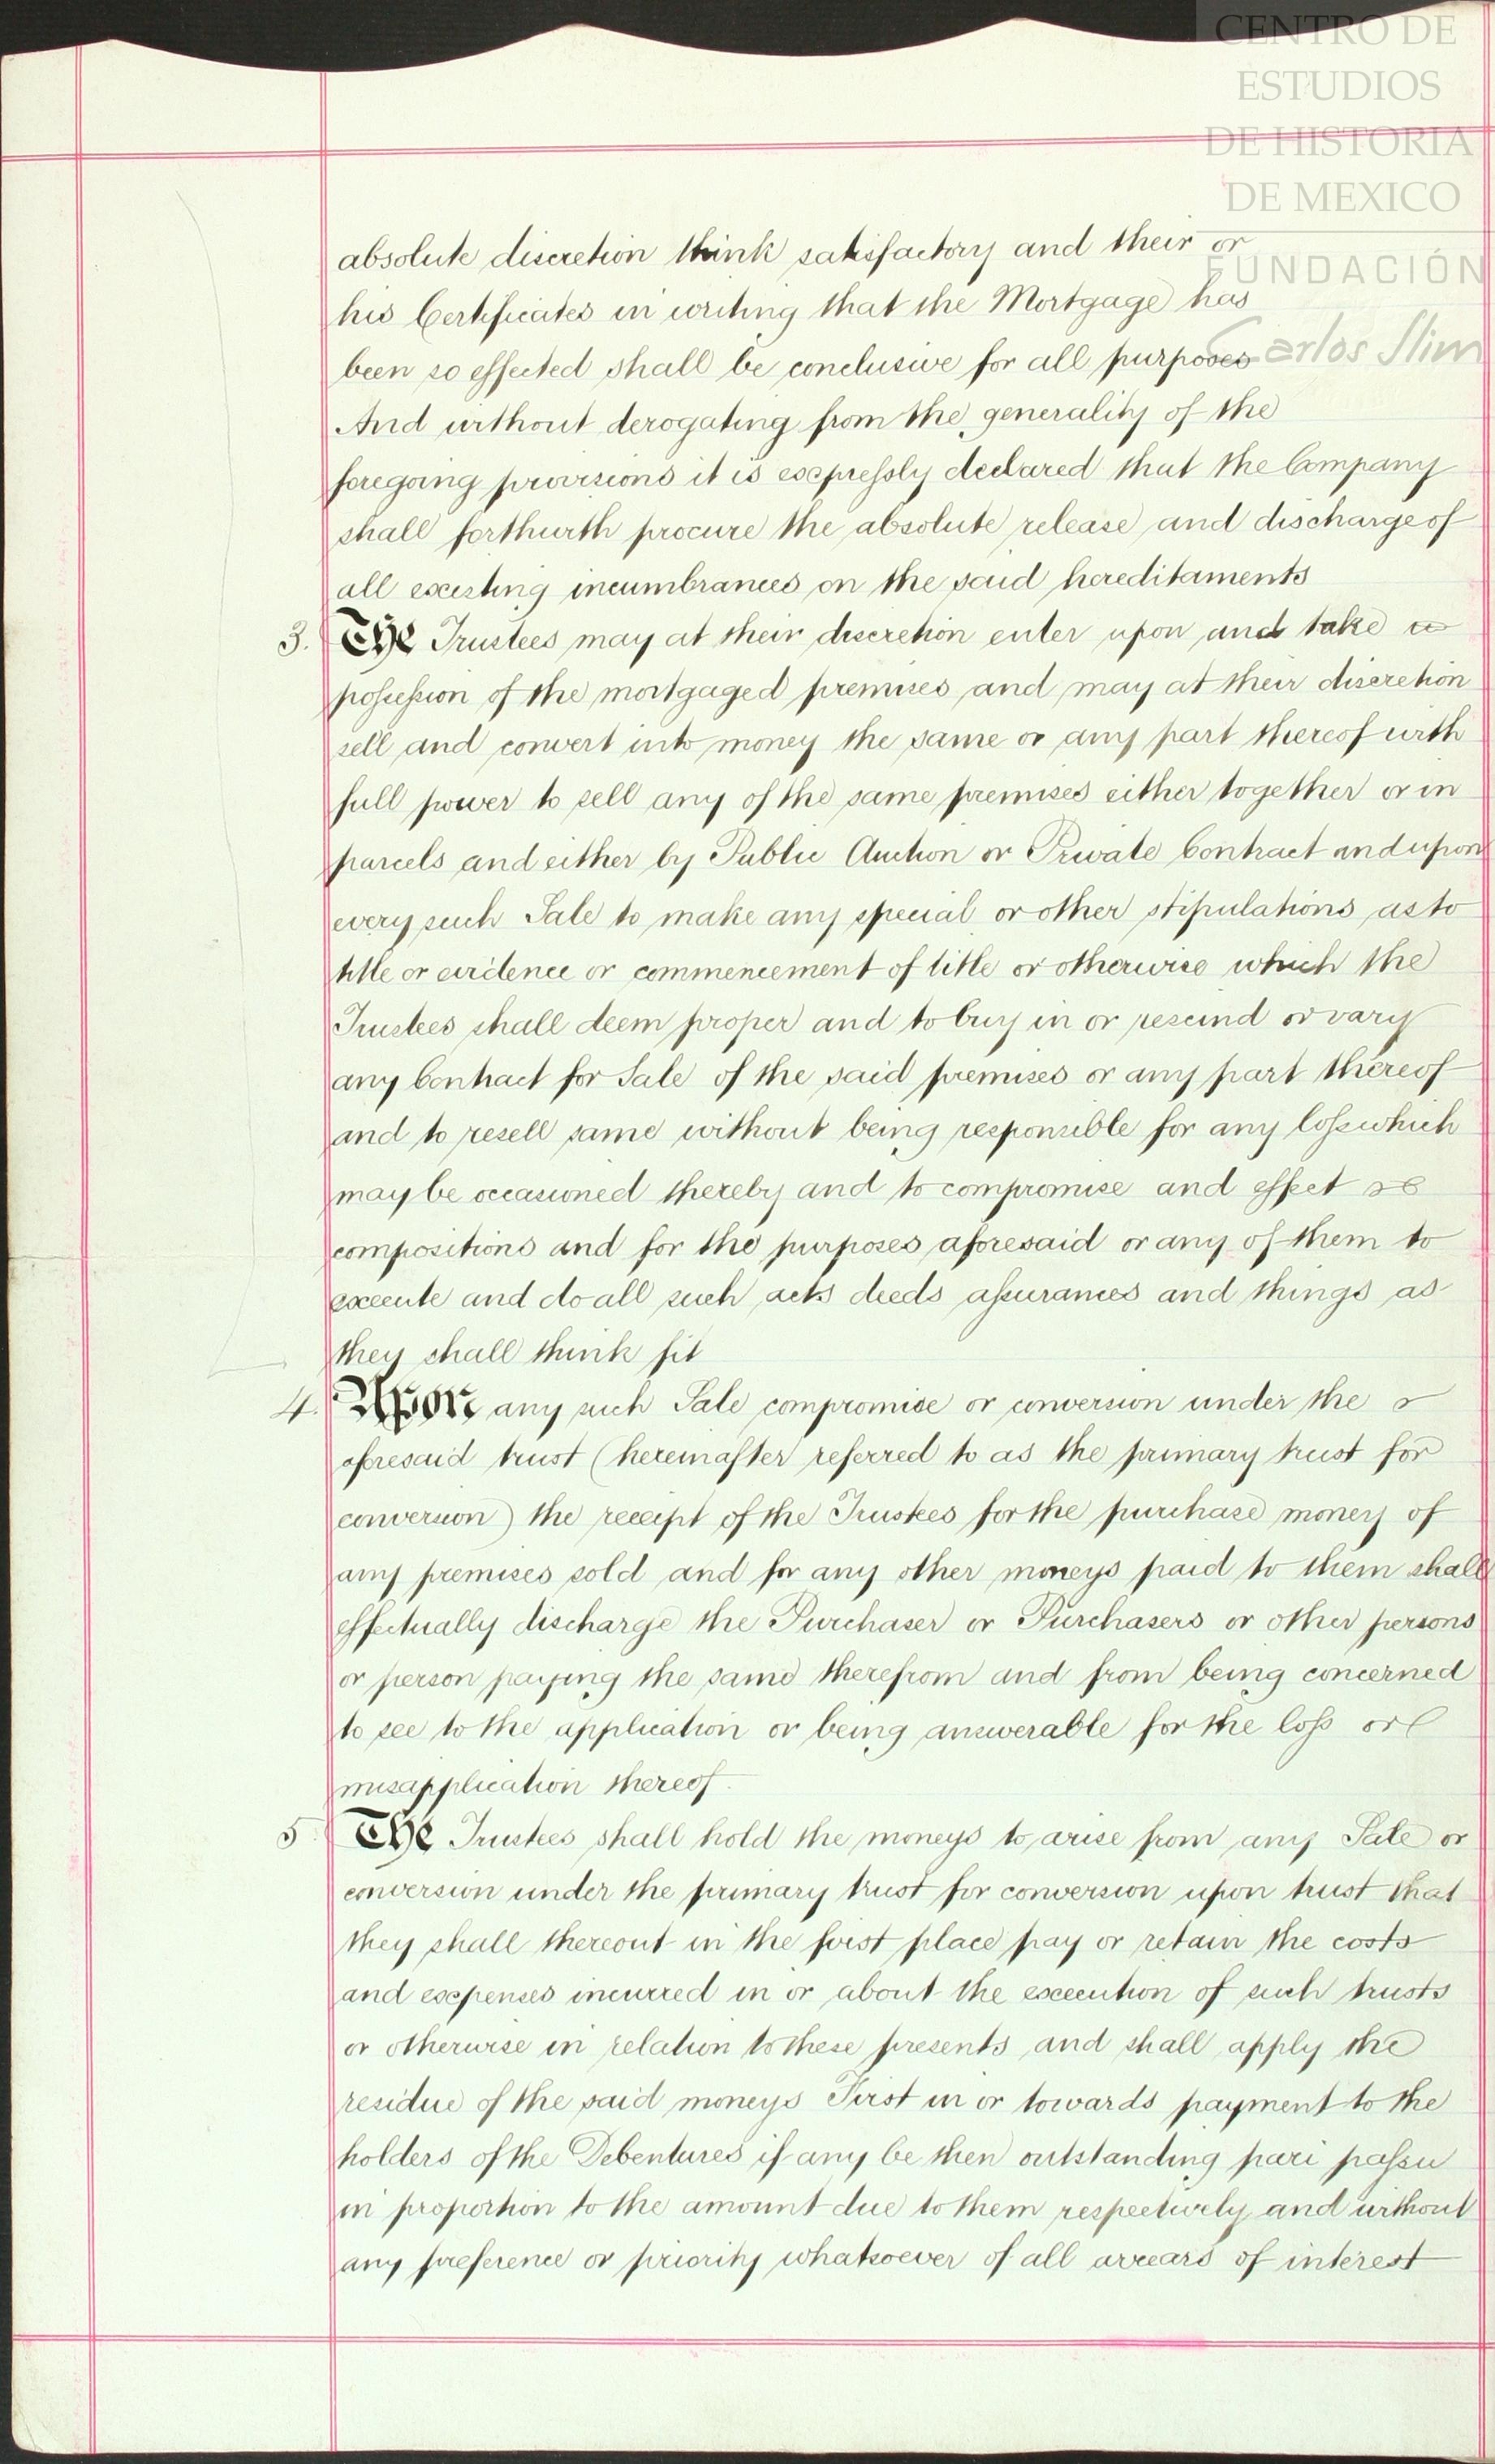 CENTRO DE
ESTUDIOS
DE HISTORIA
DE MEXICO
FUNDACIÓN
Carlos Slim
absolute discretion think satisfactory and their or
his Certificates in writing that the Mortgage has
been so effected shall be conclusive for all purposes
And without derogating from the generality of the
foregoing provisions it is expressly declared that the Company
shall forthwith procure the absolute release and discharge of
all existing incumbrances on the said hereditaments
3. The Trustees may at their discretion enter upon and take
possession of the mortgaged premises and may at their discretion
sell and convert into money the same or any part thereof with
full power to sell any of the same premises either together or in
parcels and either by Public Auction or Private Contract and upon
every such Sale to make any special or other stipulations as to
title or evidence or commencement of title or otherwise which the
Trustees shall deem proper and to buy in or rescind or vary
any Contract for Sale of the said premises or any part thereof
and to resell same without being responsible for any loss which
may be occasioned thereby and to compromise and effect
compositions and for the purposes aforesaid or any of them to
execute and do all such acts deeds assurances and things as
they shall think fit
4. Upon any such Sale compromise or conversion under the
aforesaid trust (hereinafter referred to as the primary trust for
conversion) the receipt of the Trustees for the purchase money of
any premises sold and for any other moneys paid to them shall
effectually discharge the Purchaser or Purchasers or other persons
or person paying the same therefrom and from being concerned
to see to the application or being answerable for the loss or
misapplication thereof.
5 The Trustees shall hold the moneys to arise from any Sale or
conversion under the primary trust for conversion upon trust that
they shall thereout in the first place pay or retain the costs
and expenses incurred in or about the execution of such trusts
or otherwise in relation to these presents and shall apply the
residue of the said moneys First in or towards payment to the
holders of the Debentures if any be then outstanding pari passu
in proportion to the amount due to them respectively and without
any preference or priority whatsoever of all arrears of interest